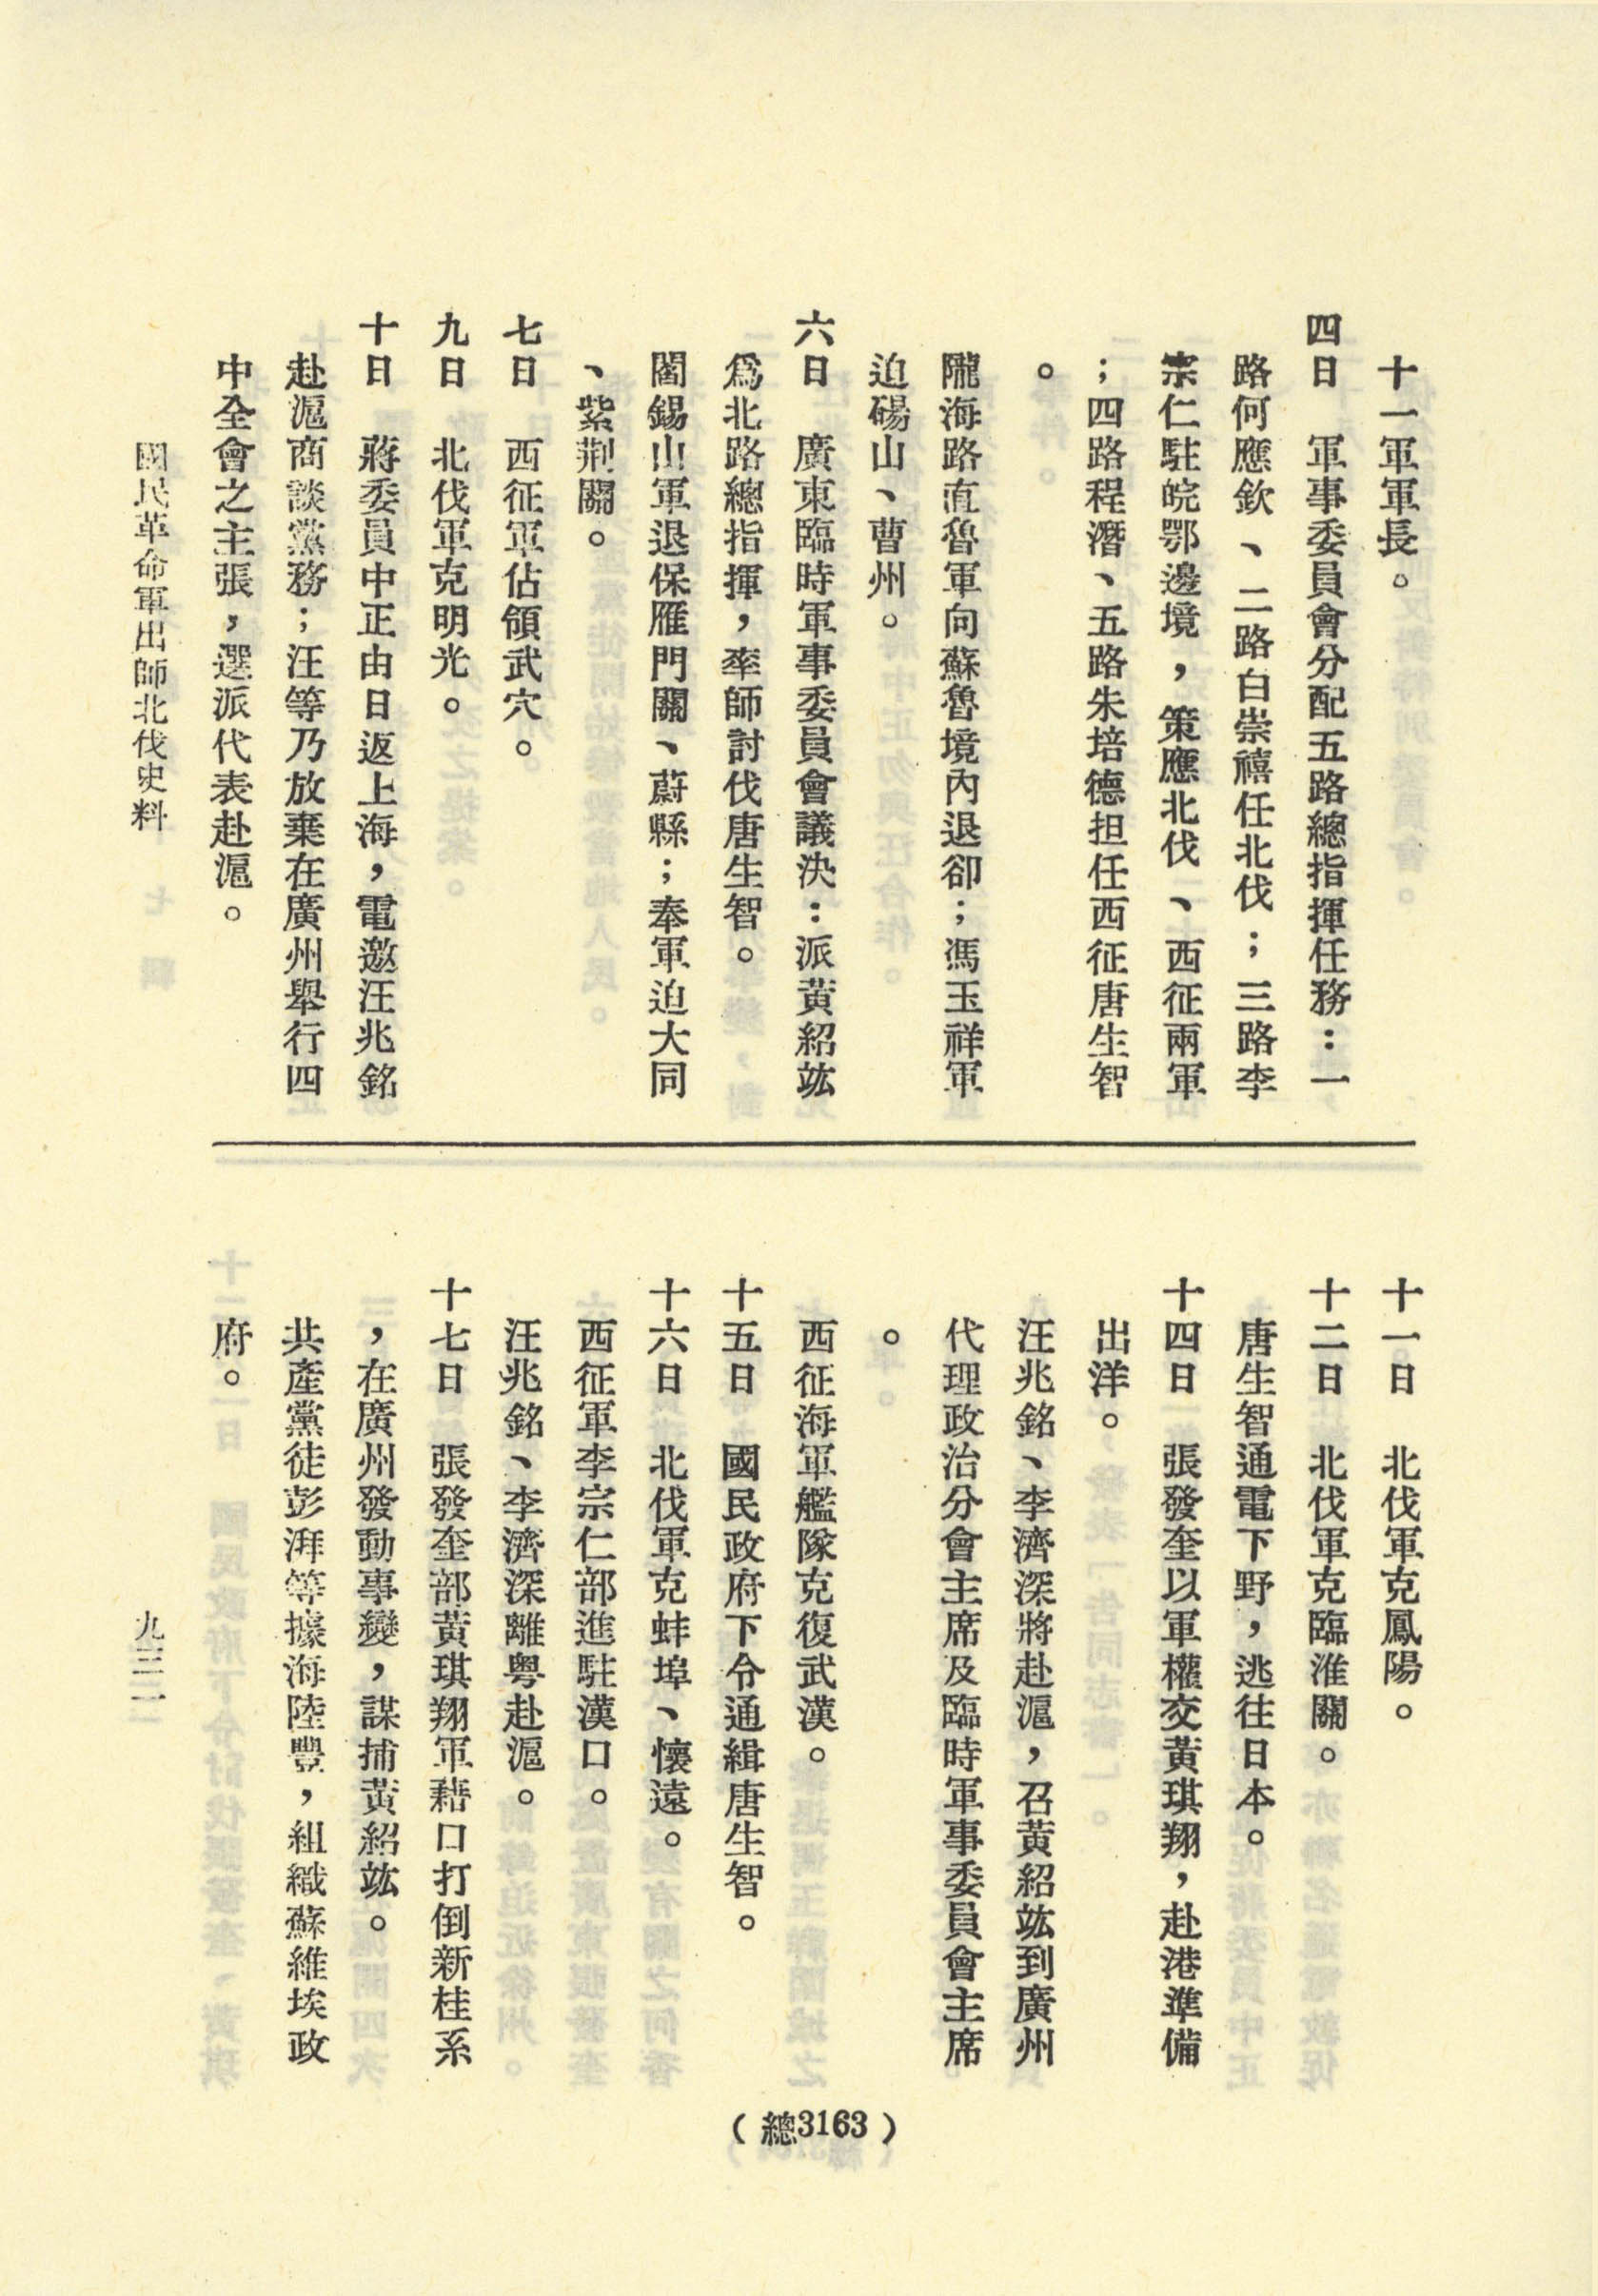 十一軍軍長。
四日　軍事委員會分配五路總指揮任務：一
路何應欽、二路白崇禧任北伐；三路李
宗仁駐皖鄂邊境，策應北伐、西征兩軍
；四路程潛、五路朱培德担任西征唐生智
。
隴海路直魯軍向蘇魯境內退卻；馮玉祥軍
迫碭山、曹州。
六日　廣東臨時軍事委員會議決：派黃紹竑
爲北路總指揮，率師討伐唐生智。
閻錫山軍退保雁門關、蔚縣；奉軍迫大同
、紫荆關。
七日　西征軍佔領武穴。
九日　北伐軍克明光。
十日　蔣委員中正由日返上海，電邀汪兆銘
赴滬商談黨務；汪等乃放棄在廣州舉行四
中全會之主張，選派代表赴滬。
十一日　北伐軍克鳳陽。
十二日　北伐軍克臨淮關。
唐生智通電下野，逃往日本。
十四日　張發奎以軍權交黃琪翔，赴港準備
出洋。
汪兆銘、李濟深將赴滬，召黃紹竑到廣州
代理政治分會主席及臨時軍事委員會主席
。
西征海軍艦隊克復武漢。
十五日　國民政府下令通緝唐生智。
十六日　北伐軍克蚌埠、懷遠。
西征軍李宗仁部進駐漢口。
汪兆銘、李濟深離粵赴滬。
十七日　張發奎部黃琪翔軍藉口打倒新桂系
，在廣州發動事變，謀捕黃紹竑。
共產黨徒彭湃等據海陸豐，組織蘇維埃政
府。
國民革命軍出師北伐史料
九三一
（總3163）